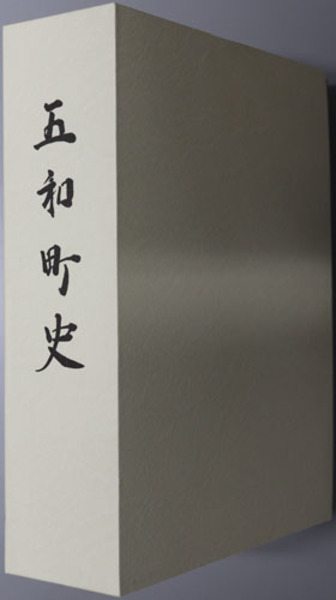 五和町史